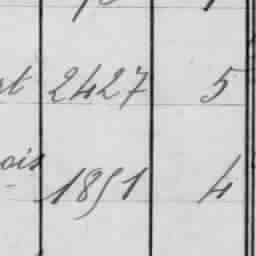 2427 5
ois 1851 4